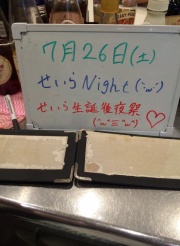 7月26日(土)
せいらNight(･ω･)
せいら生誕後夜祭
(･ω･≡･ω･)♡